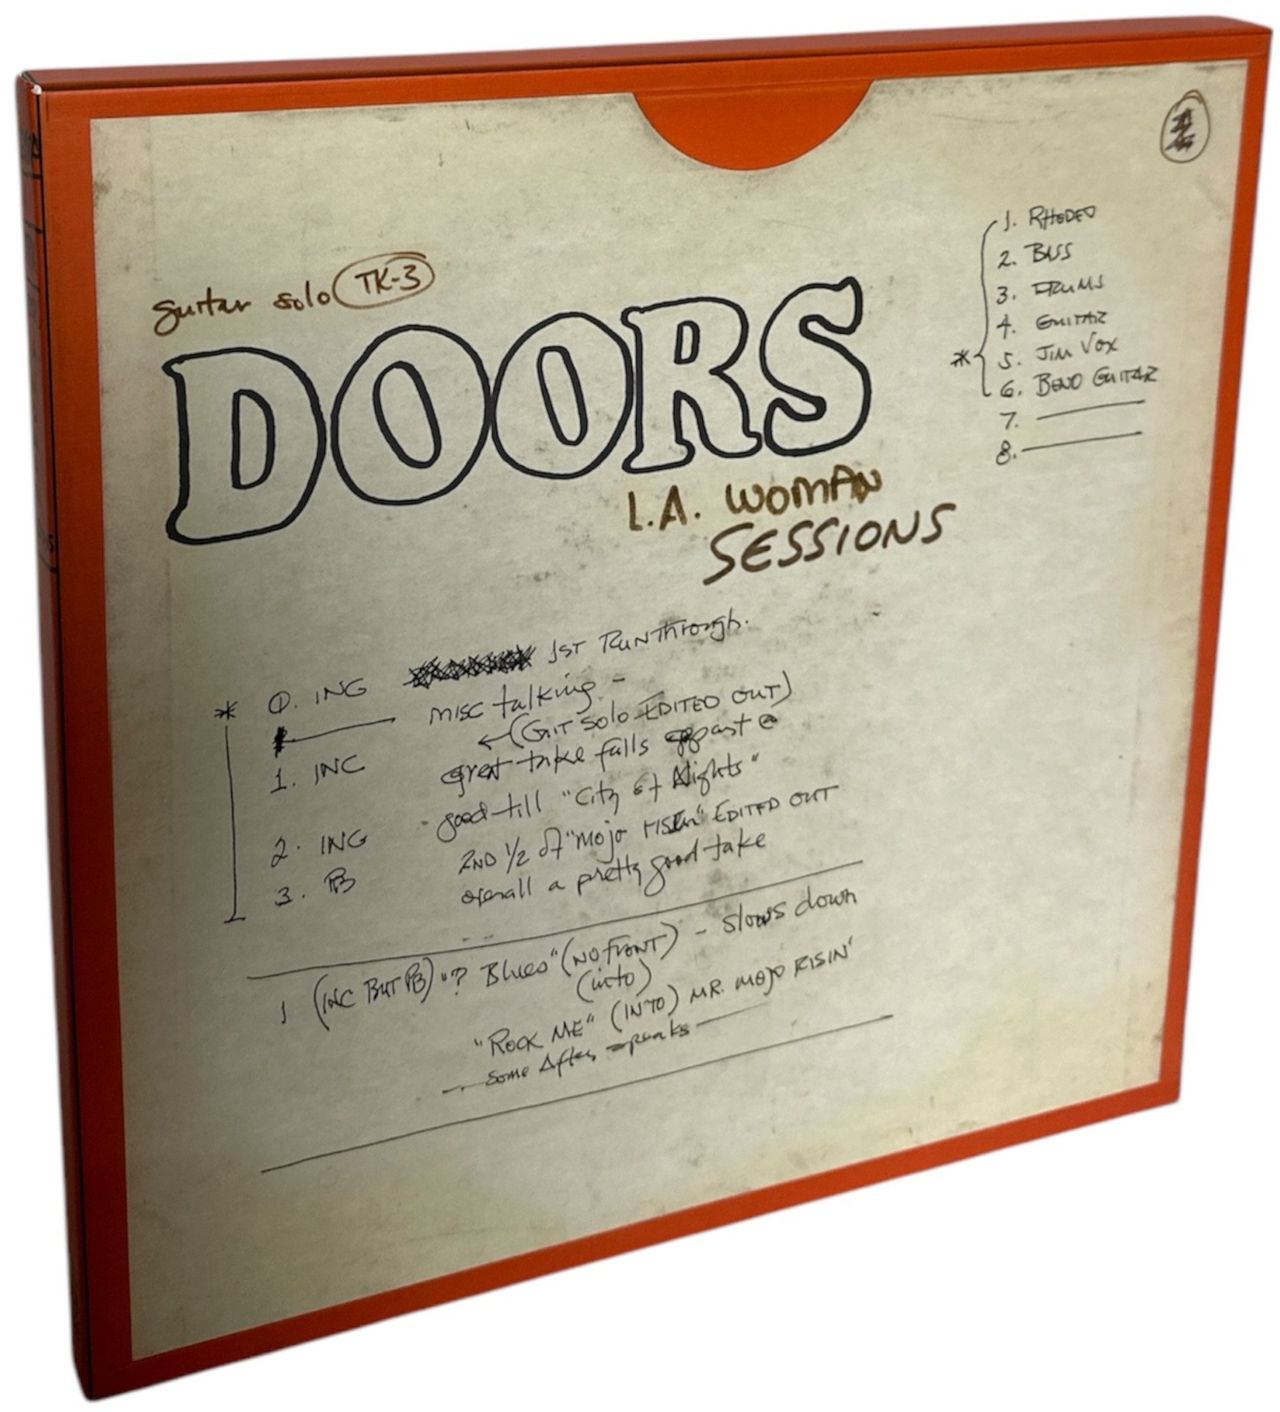 guitar solo TK-3
DOORS
L.A. WOMAN
SESSIONS
1. RHODEO
2. BASS
3. DRUMS
4. GUITAR
* 5. JIM VOX
6. BEND GUITAR
7. ———
8. ———
* 0. INC 1ST RUNThrough.
misc talking -
← (GIT SOLO EDITED OUT)
1. INC great take falls apart @
good till "City of Nights"
2. INC 2ND 1/2 of "mojo RISEn" EDITED OUT
3. PB overall a pretty good take
1 (INC BUT PB) "? Blues" (NO FRONT) - slows down
(into)
"ROCK ME" (INTO) MR. MOJO RISIN'
some After speaks